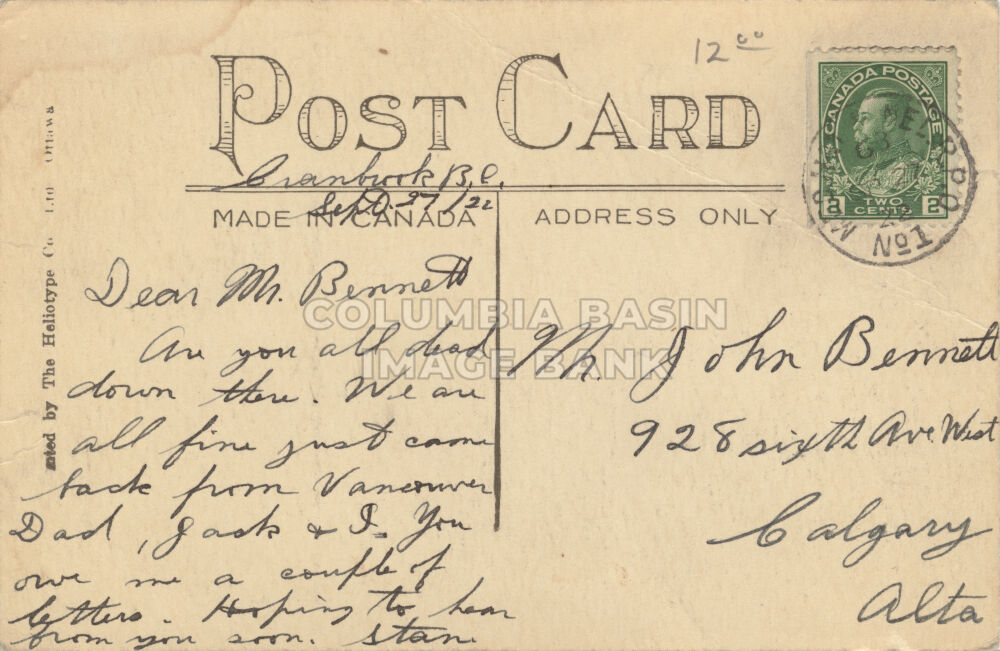 12 00
POST CARD
Cranbrook B.C.
Sept 27/22
MADE IN CANADA
ADDRESS ONLY
CANADA POSTAGE
2 TWO CENTS 2
MED. R.P.O.
No 1
22
Dear Mr. Bennett
Are you all dead
down there. We are
all fine just came
back from Vancouver
Dad, Jack & I. You
owe me a couple of
letters. Hoping to hear
from you soon. Stan
Mr. John Bennett
928 sixth Ave West
Calgary
Alta
by The Heliotype Co Ltd Ottawa
COLUMBIA BASIN
IMAGE BANK